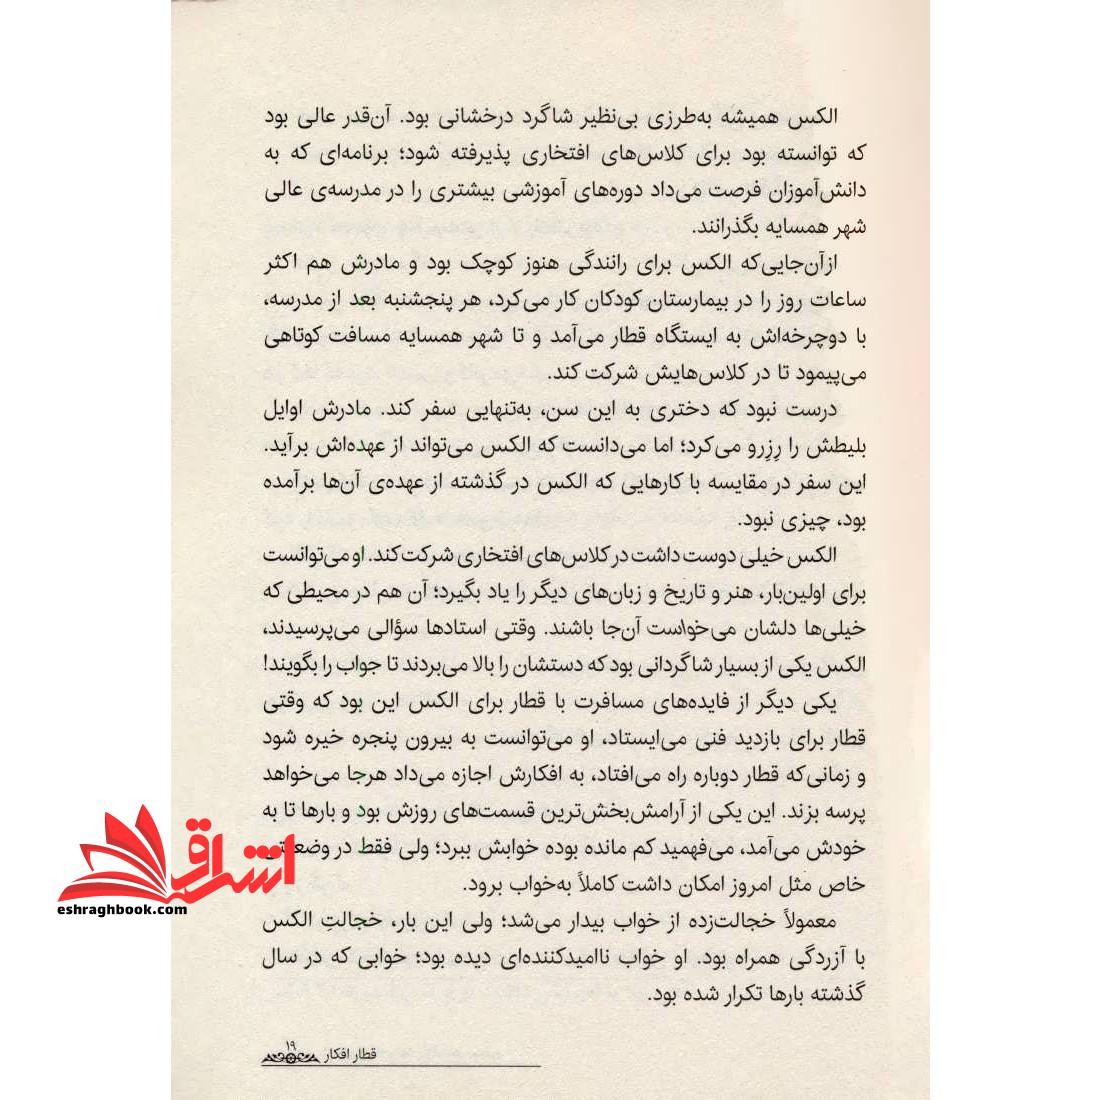 الکس همیشه به‌طرزی بی‌نظیر شاگرد درخشانی بود. آن‌قدر عالی بود
که توانسته بود برای کلاس‌های افتخاری پذیرفته شود؛ برنامه‌ای که به
دانش‌آموزان فرصت می‌داد دوره‌های آموزشی بیشتری را در مدرسه‌ی عالی
شهر همسایه بگذرانند.
ازآن‌جایی‌که الکس برای رانندگی هنوز کوچک بود و مادرش هم اکثر
ساعات روز را در بیمارستان کودکان کار می‌کرد، هر پنجشنبه بعد از مدرسه،
با دوچرخه‌اش به ایستگاه قطار می‌آمد و تا شهر همسایه مسافت کوتاهی
می‌پیمود تا در کلاس‌هایش شرکت کند.
درست نبود که دختری به این سن، به‌تنهایی سفر کند. مادرش اوایل
بلیطش را رِزِرو می‌کرد؛ اما می‌دانست که الکس می‌تواند از عهده‌اش برآید.
این سفر در مقایسه با کارهایی که الکس در گذشته از عهده‌ی آن‌ها برآمده
بود، چیزی نبود.
الکس خیلی دوست داشت در کلاس‌های افتخاری شرکت کند. او می‌توانست
برای اولین‌بار، هنر و تاریخ و زبان‌های دیگر را یاد بگیرد؛ آن هم در محیطی که
خیلی‌ها دلشان می‌خواست آن‌جا باشند. وقتی استادها سؤالی می‌پرسیدند،
الکس یکی از بسیار شاگردانی بود که دستشان را بالا می‌بردند تا جواب را بگویند!
یکی دیگر از فایده‌های مسافرت با قطار برای الکس این بود که وقتی
قطار برای بازدید فنی می‌ایستاد، او می‌توانست به بیرون پنجره خیره شود
و زمانی‌که قطار دوباره راه می‌افتاد، به افکارش اجازه می‌داد هرجا می‌خواهد
پرسه بزند. این یکی از آرامش‌بخش‌ترین قسمت‌های روزش بود و بارها تا به
خودش می‌آمد، می‌فهمید کم مانده بوده خوابش ببرد؛ ولی فقط در وضعیتی
خاص مثل امروز امکان داشت کاملاً به‌خواب برود.
معمولاً خجالت‌زده از خواب بیدار می‌شد؛ ولی این بار، خجالتِ الکس
با آزردگی همراه بود. او خواب ناامیدکننده‌ای دیده بود؛ خوابی که در سال
گذشته بارها تکرار شده بود.
قطار افکار ۱۹
اشراق
eshraghbook.com